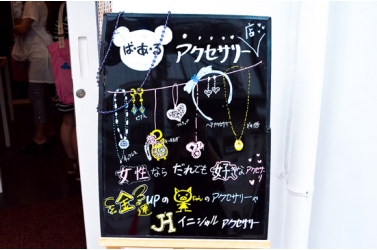 ば・あ・る アクセサリー店
ピアス
女性ならだれでも好きなアクセサリー
金運upの ちゃんのアクセサリーや
イニシャル アクセサリー